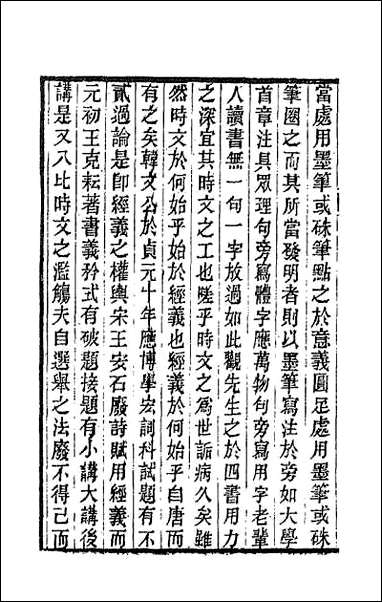 當處用墨筆或硃筆點之於意義圓足處用墨筆或硃
筆圈之而其所當發明者則以墨筆寫注於旁如大學
首章注具眾理句旁寫體字應萬物句旁寫用字老輩
人讀書無一句一字放過如此觀先生之於四書用力
之深宜其時文之工也嗟乎時文之爲世詬病久矣雖
然時文於何始乎始於經義也經義於何始乎自唐而
有之矣韓文公於貞元十年應博學宏詞科試題有不
貳過論是卽經義之權輿宋王安石廢詩賦用經義而
元初王克耘著書義矜式有破題接題有小講大講後
講是又八比時文之濫觴夫自選舉之法廢不得已而